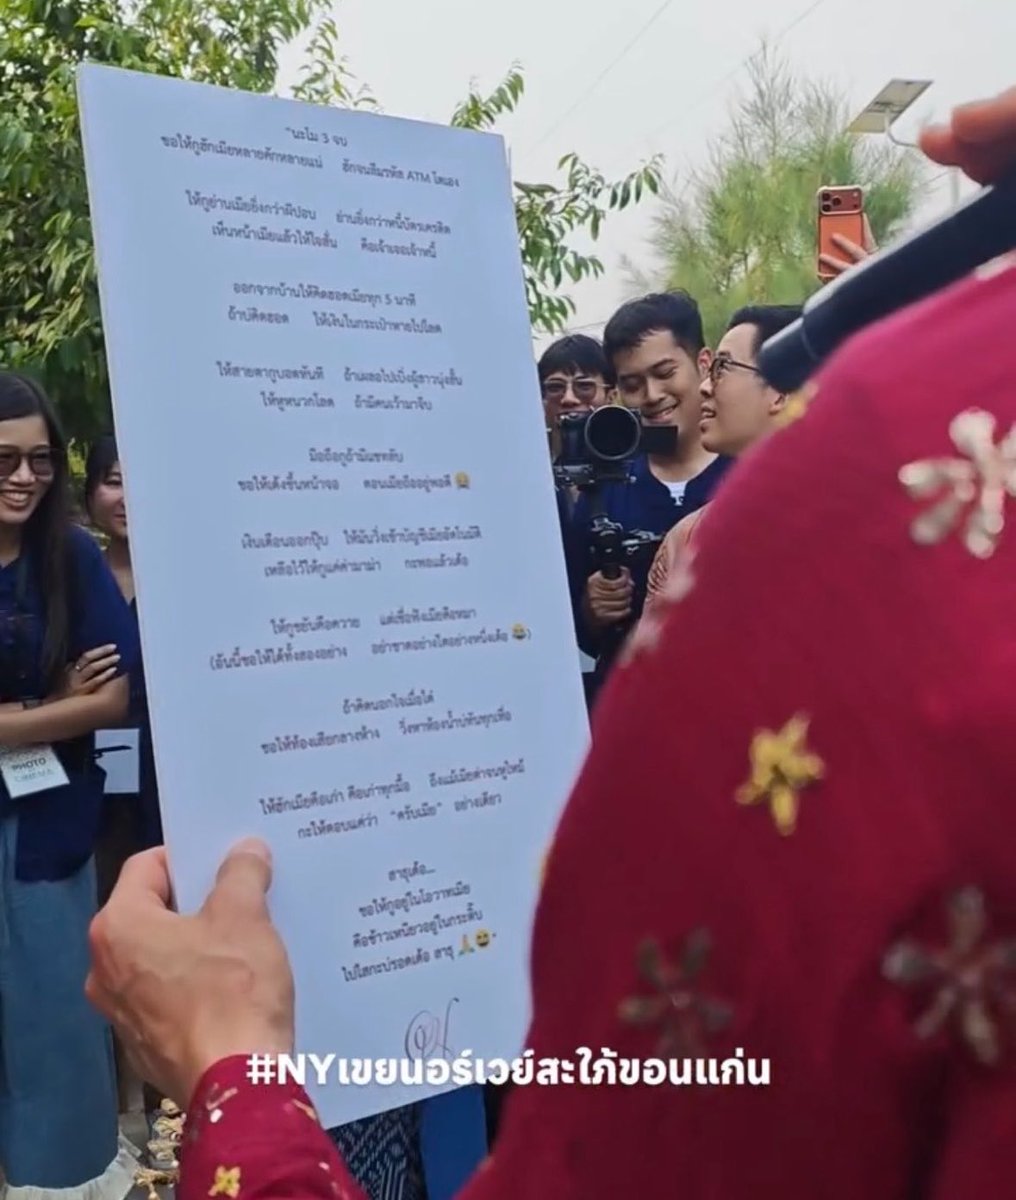 "นะโม 3 จบ
ขอให้กูฮักเมียหลายคักหลายแน่ ฮักจนลืมรหัส ATM โตเอง
ให้กูย่านเมียยิ่งกว่าผีปอบ ย่านยิ่งกว่าหนี้บัตรเครดิต
เห็นหน้าเมียแล้วให้ใจสั่น คือเจ้าเจอเจ้าหนี้
ออกจากบ้านให้คิดฮอดเมียทุก 5 นาที
ถ้าบ่คิดฮอด ให้เงินในกระเป๋าหายไปโลด
ให้สายตากูบอดทันที ถ้าเผลอไปเบิ่งผู้สาวนุ่งสั้น
ให้หูหนวกโลด ถ้ามีคนเว้ามาจีบ
มือถือกูถ้ามีแชทลับ
ขอให้เด้งขึ้นหน้าจอ ตอนเมียถืออยู่พอดี 😭
เงินเดือนออกปุ๊บ ให้มันวิ่งเข้าบัญชีเมียอัตโนมัติ
เหลือไว้ให้กูแค่ค่ามาม่า กะพอแล้วเด้อ
ให้กูขยันคือควาย แต่เชื่อฟังเมียคือหมา
(อันนี้ขอให้ได้ทั้งสองอย่าง อย่าขาดอย่างใดอย่างหนึ่งเด้อ 😂)
ถ้าคิดนอกใจเมื่อใด๋
ขอให้ท้องเสียกลางห้าง วิ่งหาห้องน้ำบ่ทันทุกเทื่อ
ให้ฮักเมียคือเก่า คือเก่าทุกมื้อ ถึงแม้เมียด่าจนหูไหม้
กะให้ตอบแค่ว่า "ครับเมีย" อย่างเดียว
สาธุเด้อ...
ขอให้กูอยู่ในโอวาทเมีย
คือข้าวเหนียวอยู่ในกระติ๊บ
ไปใสกะบ่รอดเด้อ สาธุ 🙏😆"
#NYเขยนอร์เวย์สะใภ้ขอนแก่น
PHOTO
CINEMA